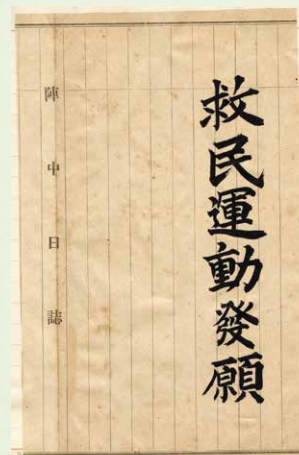 救民運動發願
陣中日誌